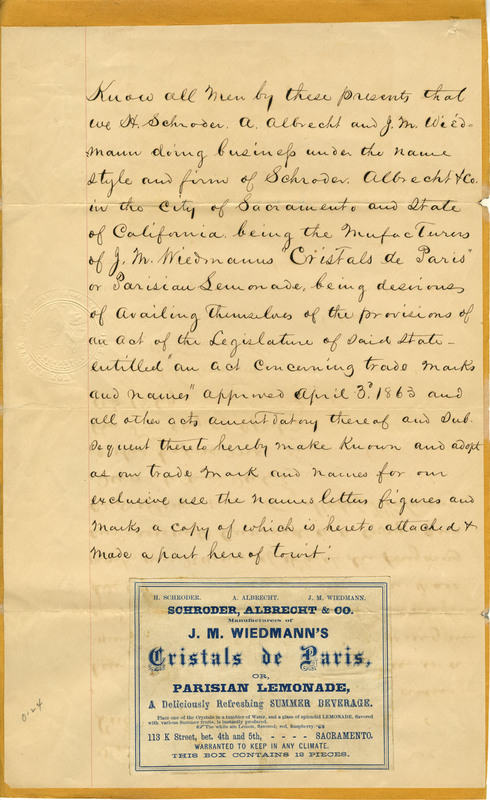 Know all Men by these presents that
we H. Schroder. A. Albrecht and J. M. Wied-
mann doing business under the name
style and firm of Schroder. Albrecht & Co.
in the City of Sacramento and State
of California. being the Mufacturers
of J. M. Wiedmanns "Cristals de Paris"
or Parisian Lemonade, being desirous
of availing themselves of the provisions of
an act of the Legislature of said State-
entitled "an act Concerning trade Marks
and names" approved April 3d. 1863 and
all other acts amendatory thereof and sub.
sequent thereto hereby make Known and adopt
as our trade Mark and names for our
exclusive use the names letters figures and
Marks a copy of which is hereto attached &
Made a part here of towit:
H. SCHRODER. A. ALBRECHT. J. M. WIEDMANN.
SCHRODER, ALBRECHT & CO.
Manufacturers of
J. M. WIEDMANN'S
Cristals de Paris,
OR,
PARISIAN LEMONADE,
A Deliciously Refreshing SUMMER BEVERAGE.
Place one of the Crystals in a tumbler of Water, and a glass of splendid LEMONADE, flavored
with various Summer fruits, is instantly produced.
The white are Lemon, flavored; red, Raspberry
113 K Street, bet. 4th and 5th, - - - - SACRAMENTO.
WARRANTED TO KEEP IN ANY CLIMATE.
THIS BOX CONTAINS 12 PIECES.